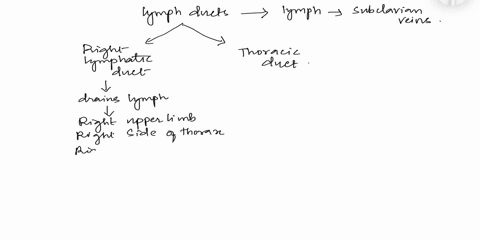 lymph ducts → lymph → subclavian veins.
Right lymphatic duct
Thoracic duct.
drains lymph
Right upper limb
Right side of thorax
Ri